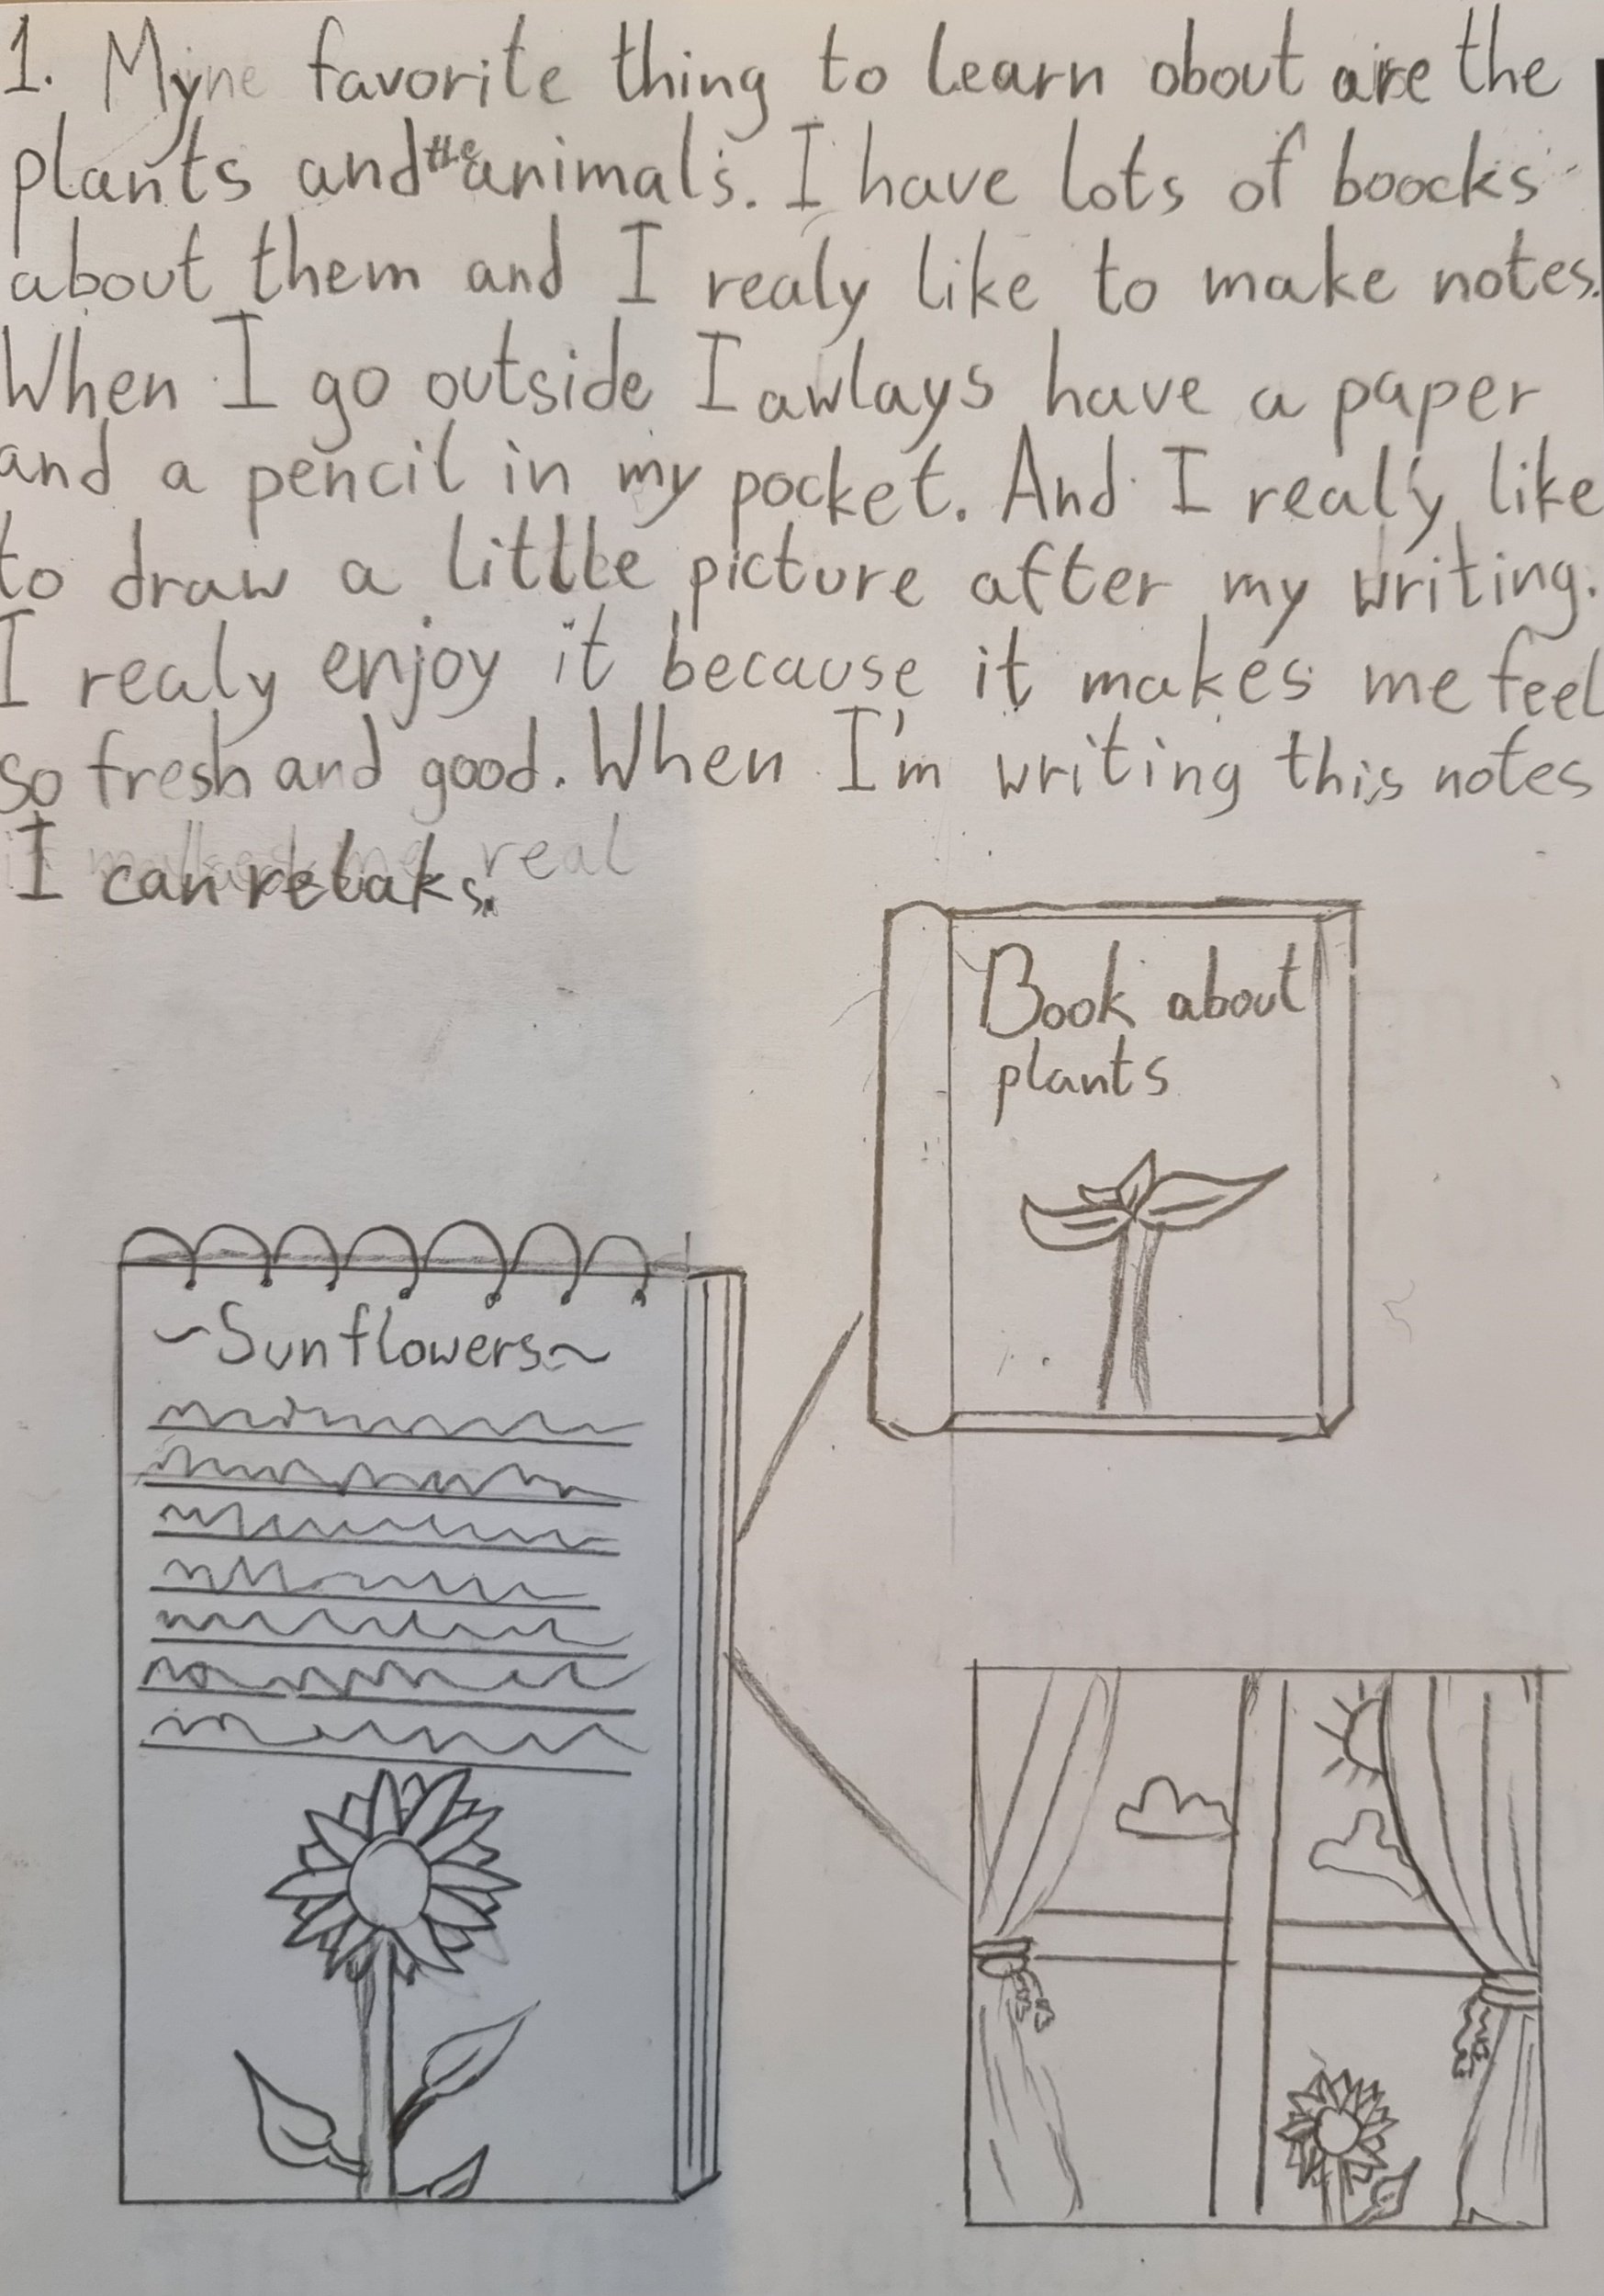 1. Myne favorite thing to learn obout are the
plants and the animals. I have lots of boocks
about them and I realy like to make notes.
When I go outside I awlays have a paper
and a pencil in my pocket. And I realy like
to draw a little picture after my writing.
I realy enjoy it because it makes me feel
so fresh and good. When I'm writing this notes
I can relaks.
Book about
plants
~Sunflowers~